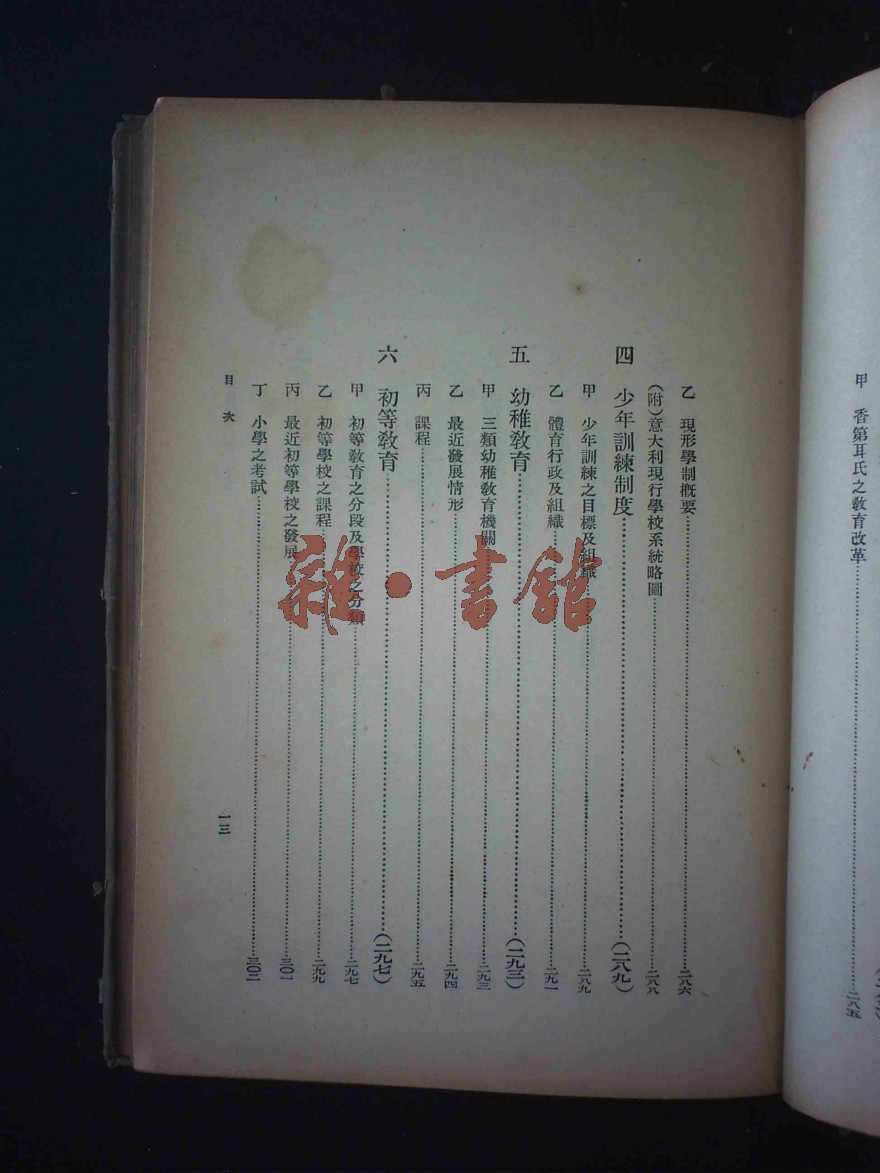 甲 香第耳氏之敎育改革……二八五
乙 現形學制概要……二八六
(附)意大利現行學校系統略圖……二八八
四 少年訓練制度……(二八九)
甲 少年訓練之目標及組織……二八九
乙 體育行政及組織……二九一
五 幼稚敎育……(二九三)
甲 三類幼稚敎育機關……二九三
乙 最近發展情形……二九四
丙 課程……二九五
六 初等敎育……(二九七)
甲 初等敎育之分段及學校之分類……二九七
乙 初等學校之課程……二九九
丙 最近初等學校之發展……三〇一
丁 小學之考試……三〇二
目次
一三
雜·書館